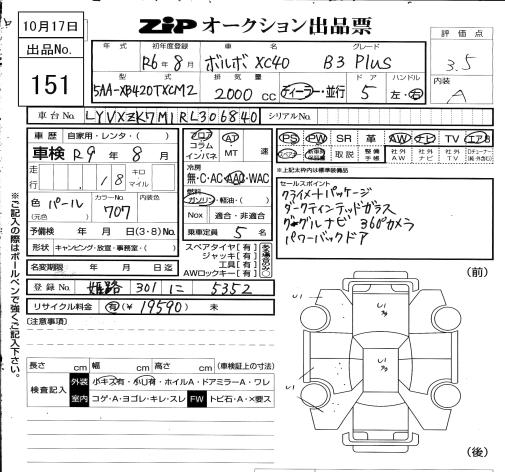 10月17日
ZIP オークション出品票
出品No.
151
年式 初年度登録 車名 グレード
R6年8月 ボルボ XC40 B3 Plus
型式 排気量 ドア ハンドル
5AA-XB420TXCM2 2000cc ディーラー・並行 5 左・右
評価点
3.5
内装
A
車台No. LYVXZK7M1RL306840 シリアルNo.
車歴 自家用・レンタ・( )
車検 R9年8月
走行 18 キロ マイル
色 パール (元色) カラーNo. 707
予備検 年 月 日(3・8)No.
形状 キャンピング・放宣・事務室・( )
名変期限 年 月 日迄
登録No. 姫路 301 に 5352
リサイクル料金 有(¥19590) 未
フロア コラム インパネ
AT・MT 速
冷房 無・C・AC・AAC・WAC
燃料 ガソリン・軽油・( )
Nox 適合・非適合
乗車定員 5名
スペアタイヤ[有]
ジャッキ[有]
工具[有]
AWロックキー[有]
PS PW SR 革 AW ナビ TV エアB
取説 整備手帳 社外AW 社外ナビ 社外TV
※上記太枠は標準装備品
セールスポイント
クライメートパッケージ
ダークティンテッドガラス
グーグルナビ 360°カメラ
パワーバックドア
※ご記入の際はボールペンで強くご記入下さい。
[注意事項]
長さ cm 幅 cm 高さ cm (車検証上の寸法)
検査記入 外装 小キズ有・小U有・ホイルA・ドアミラーA・ワレ
室内 コゲ・A・ヨゴレ・キレ・スレ FW トビ石・A・×要ス
(前)
(後)